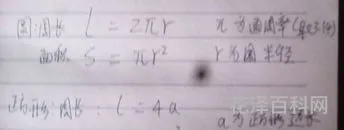 圆:周长 l = 2πr π为圆周率(取3.14)
面积 S = πr² r为圆半径
正方形:周长:l = 4a
a为正方形边长
花泽百科网